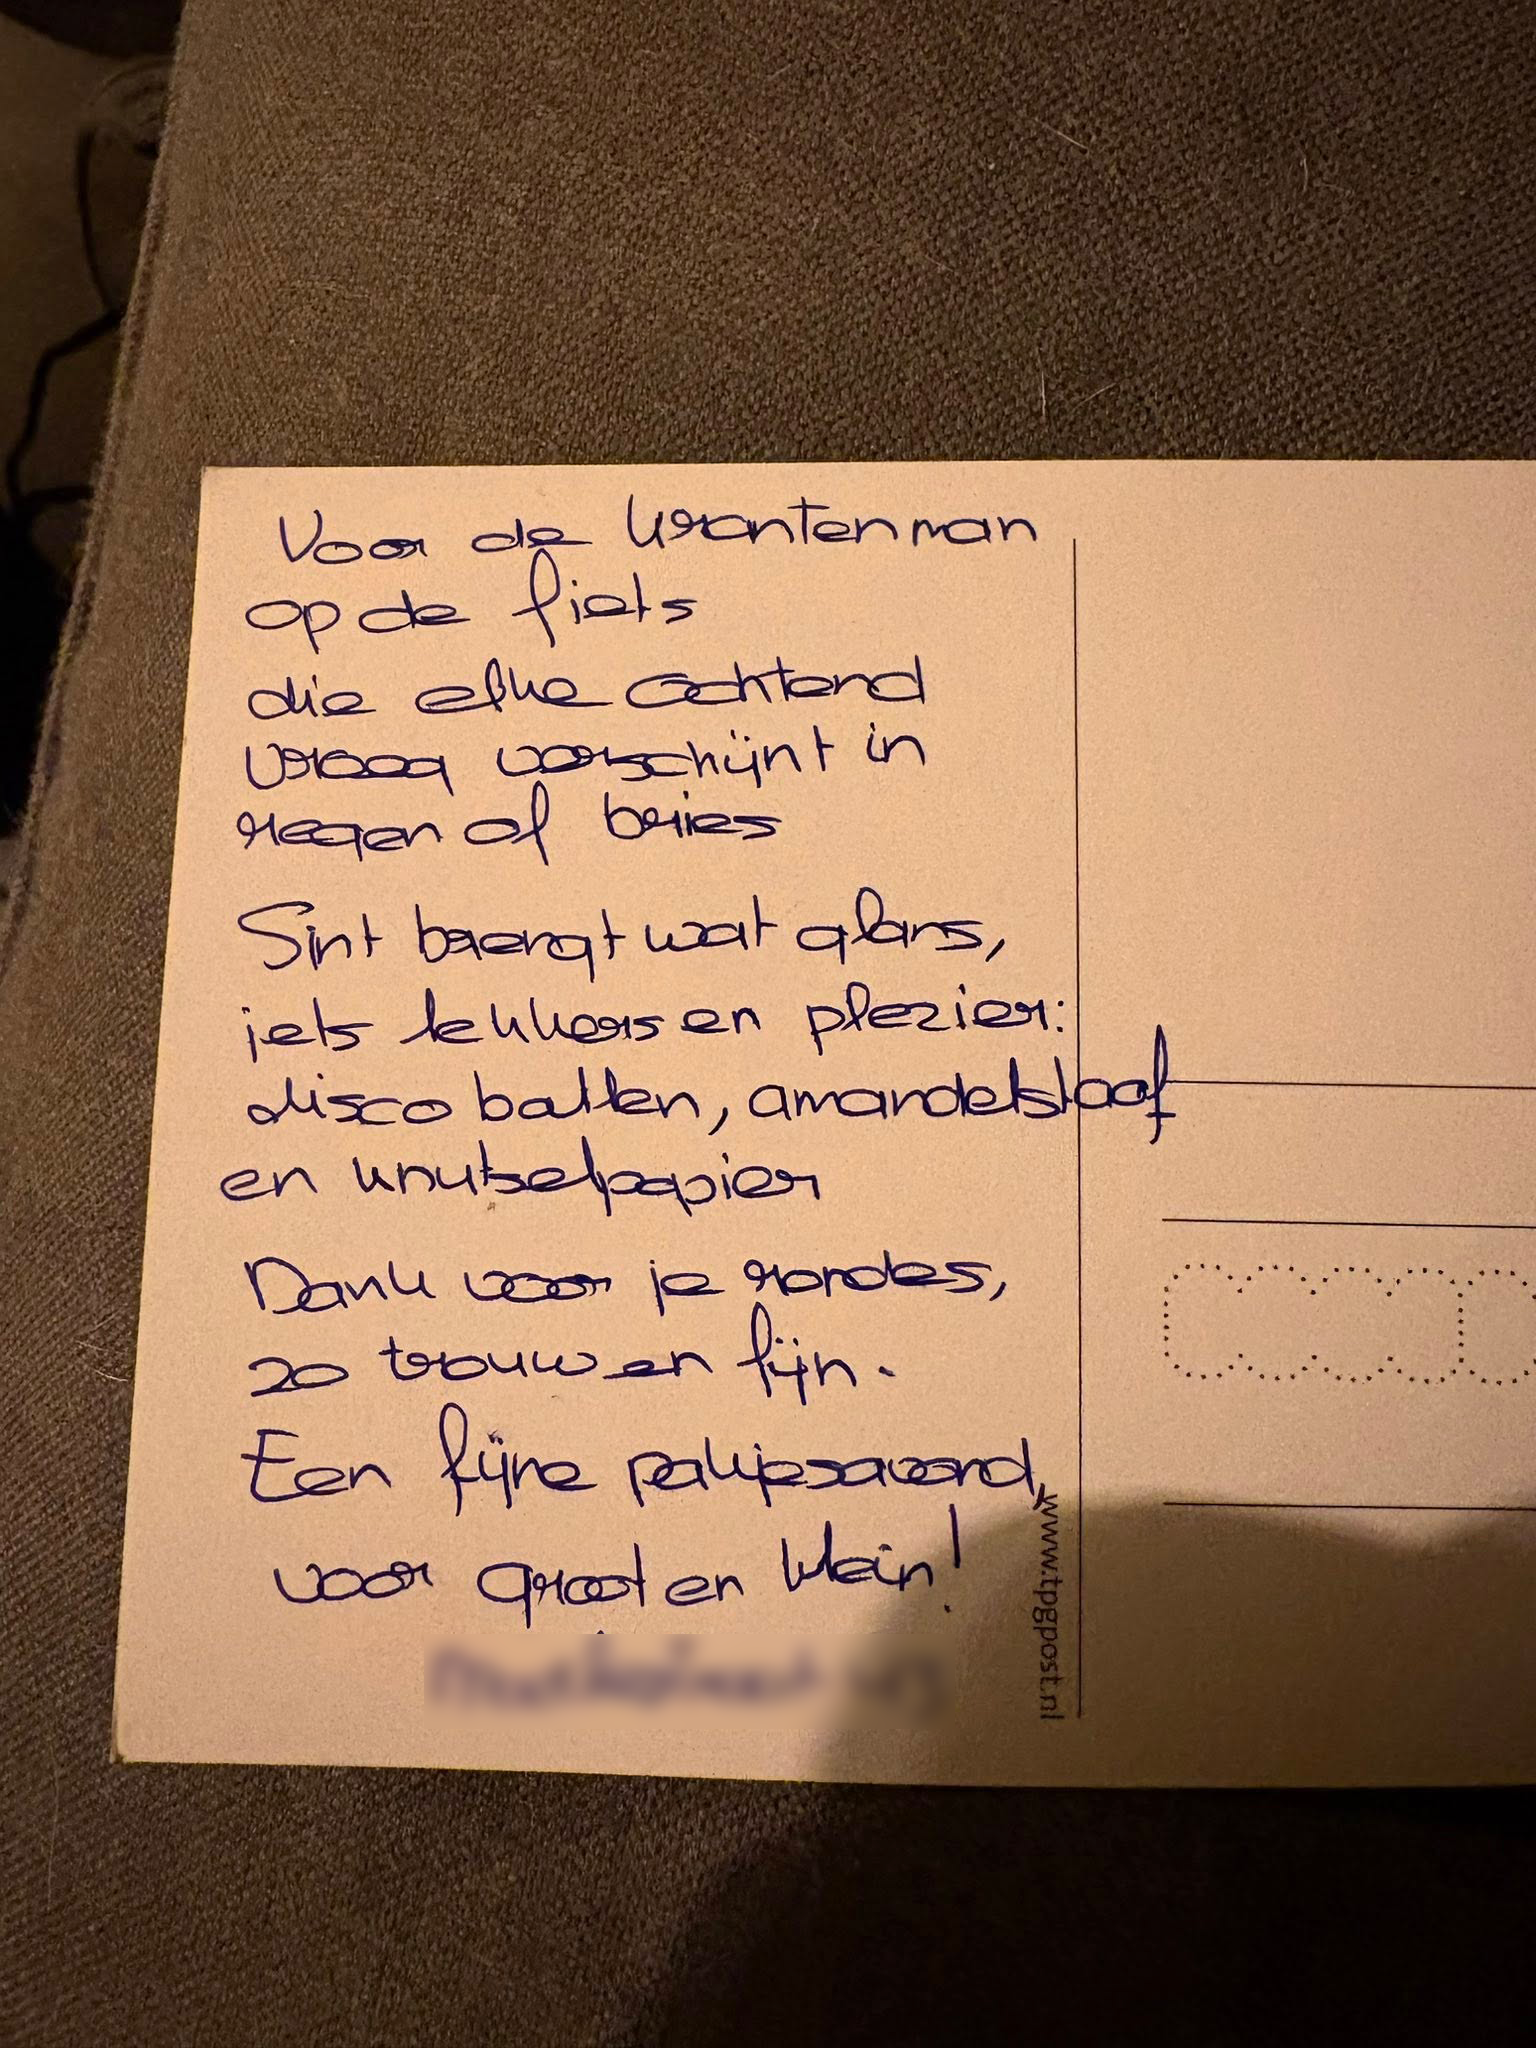 Voor de krantenman
op de fiets
die elke ochtend
vroeg verschijnt in
regen of bries
Sint brengt wat glans,
iets lekkers en plezier:
disco ballen, amandelstaaf
en knutselpapier
Dank voor je rondes,
zo trouw en fijn.
Een fijne pakjesavond,
voor groot en klein!
www.tpgpost.nl